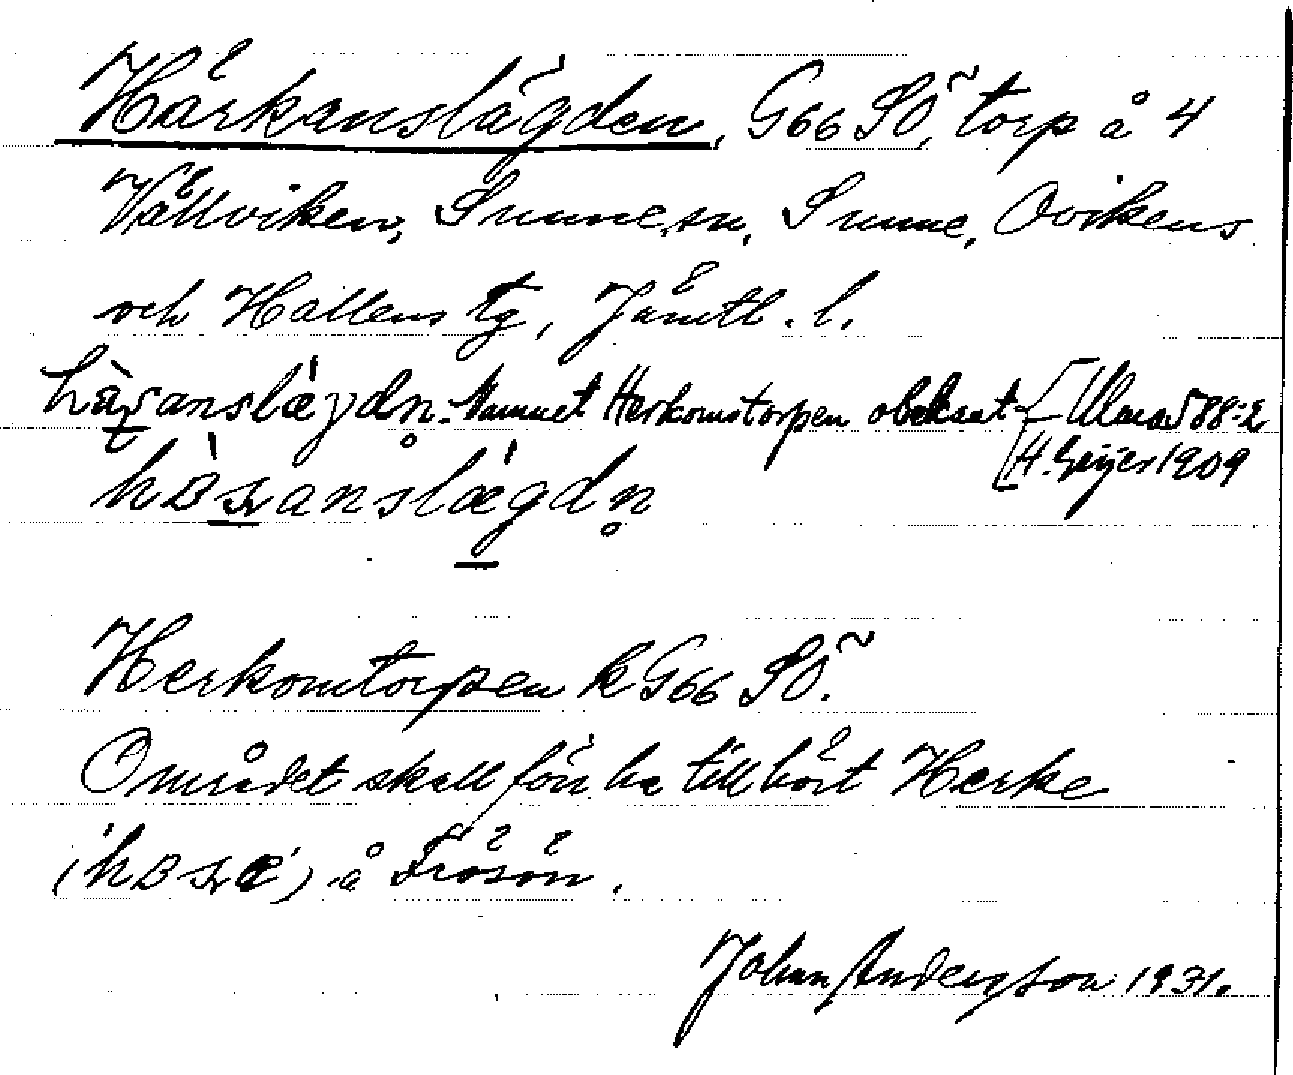 Härkanslägden, G66 SÖ, torp å 4
Vällviken, Sunne sn, Sunne, Ovikens
och Hallens tg, Jämtl. l.
Namnet Herkomstorpen obekant [Ulma 588:2
[H. Geijer 1909
Herkomtorpen k G66 SÖ.
Området skall förr ha tillhört Herke
å Frösön.
Johan Andersson 1931.